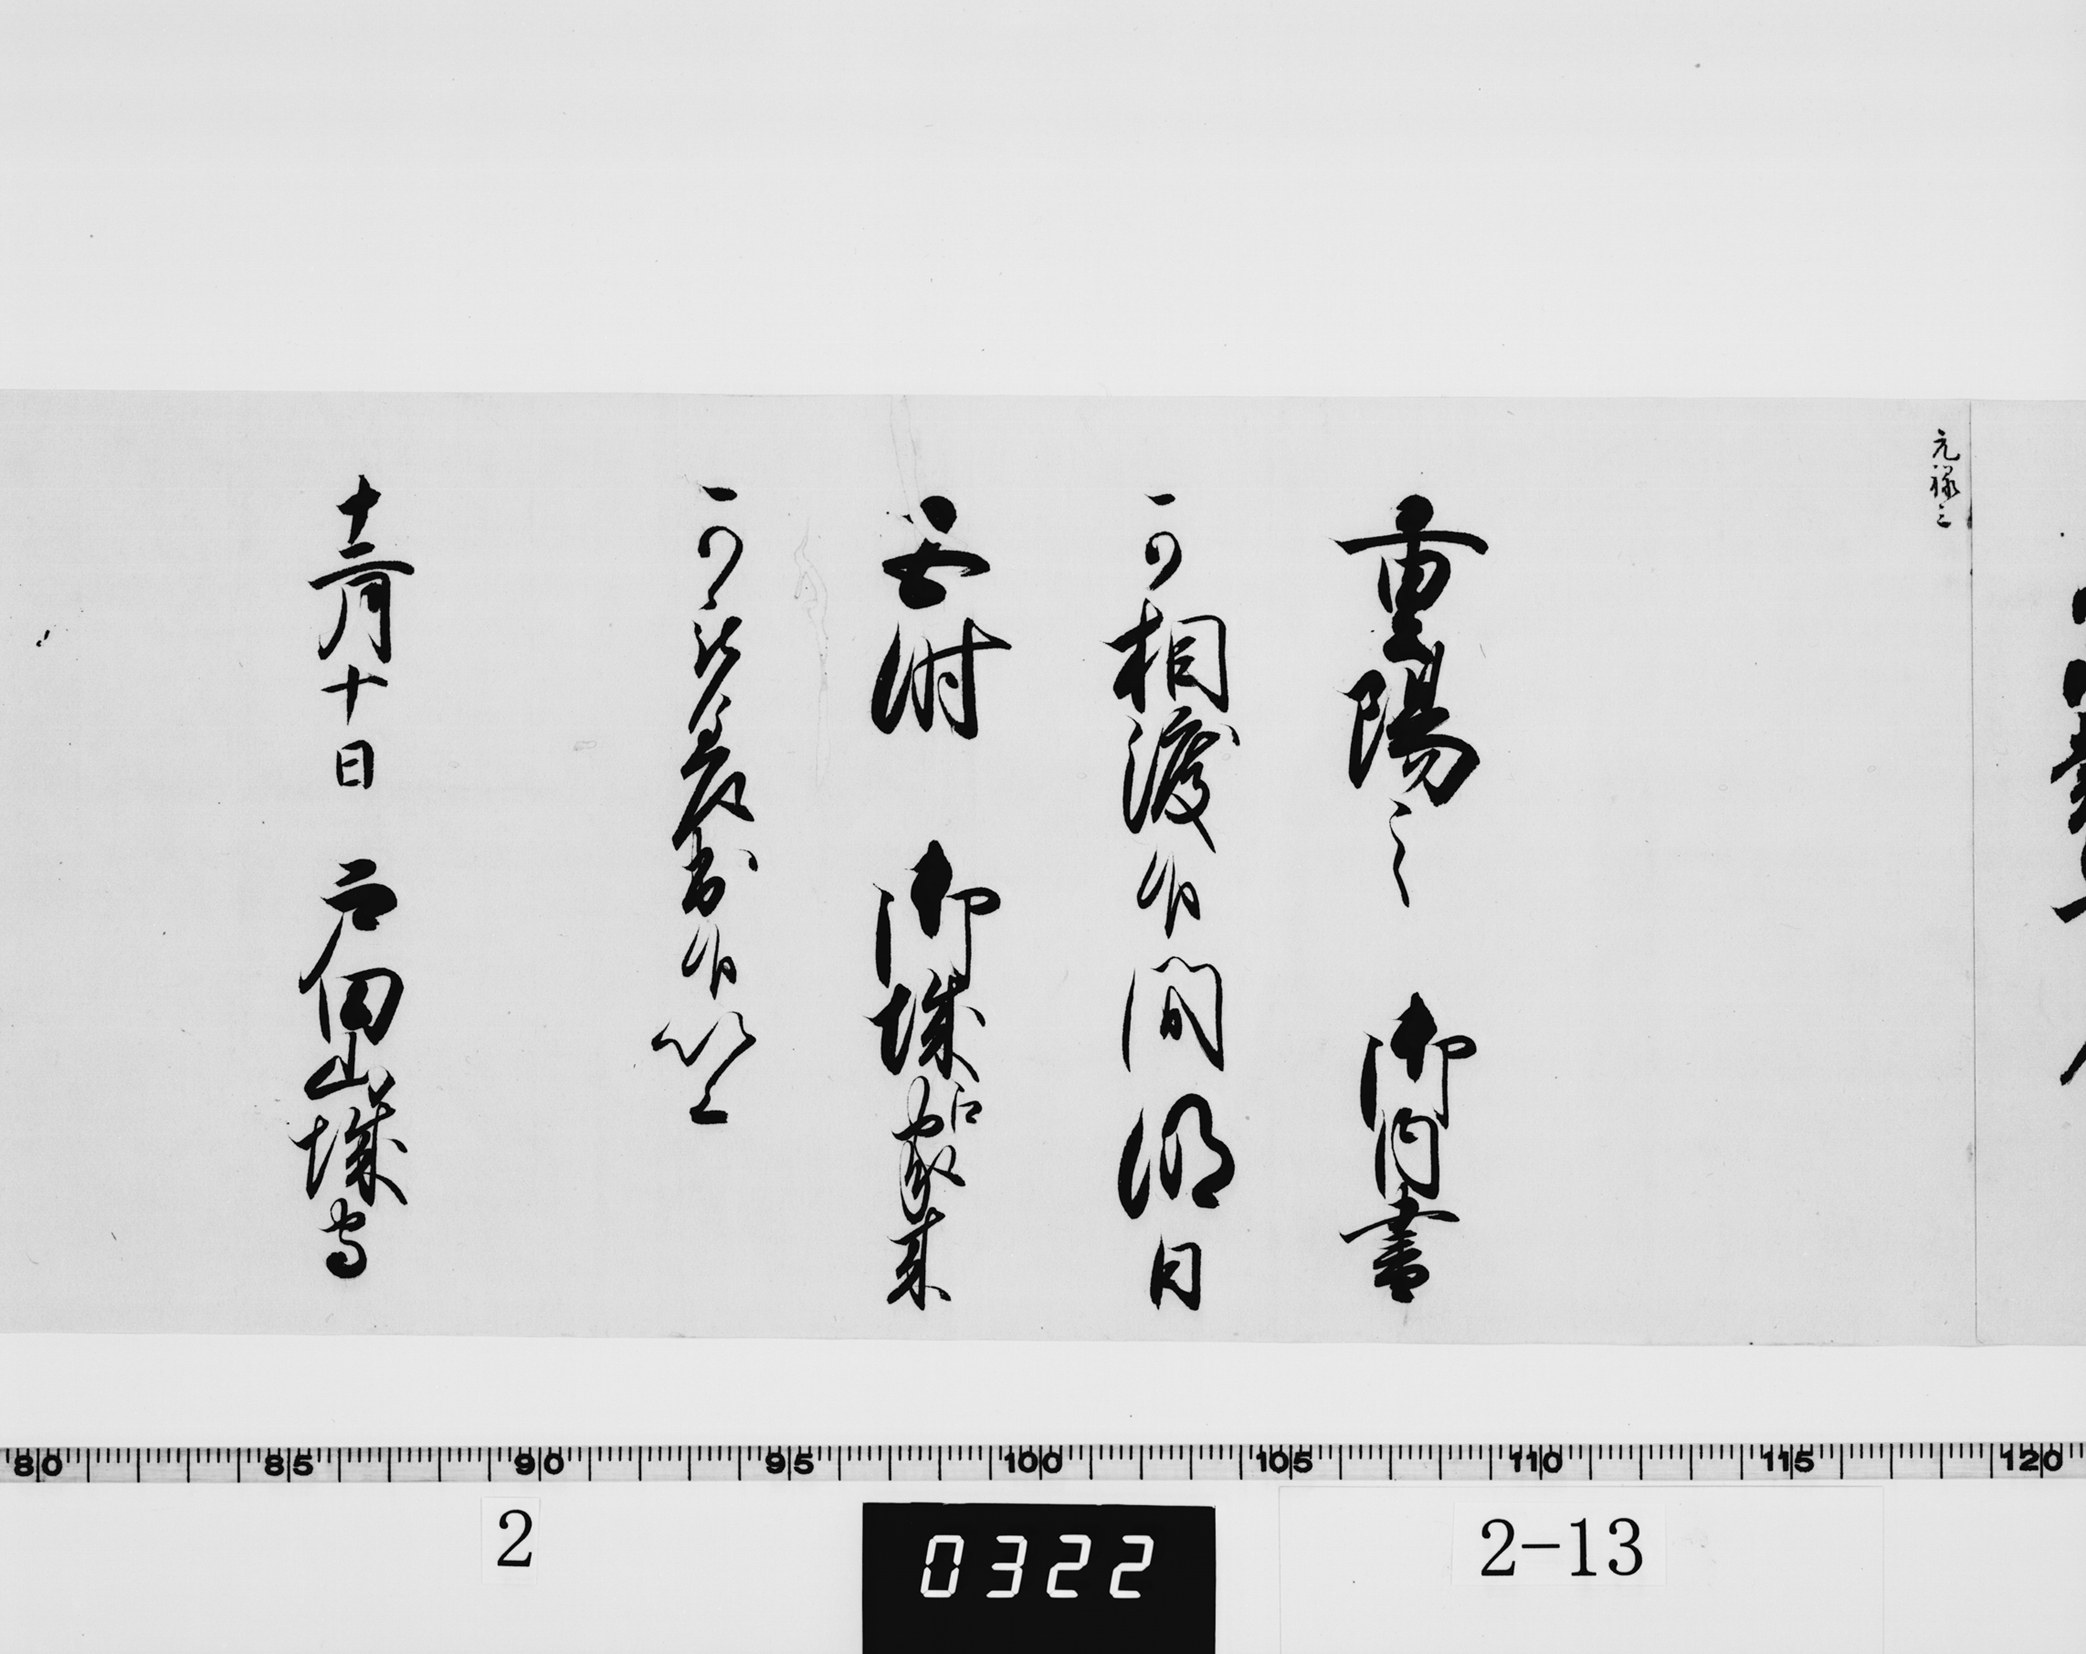 元禄三
重陽之　御内書
可相渡候間明日
五時　御城江家来
可被差出候以上
十二月十日　戸田山城守
80 85 90 95 100 105 110 115 120
2
0322
2-13